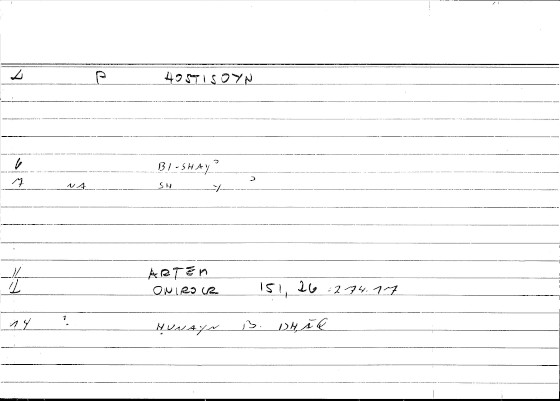 P HOSTISOYN
6 BI-SHAY?
7 NA SH Y ?
11 ARTEM
12 ONIROCR 151, 26 : 274.17
14 ? ḤUNAYN B.